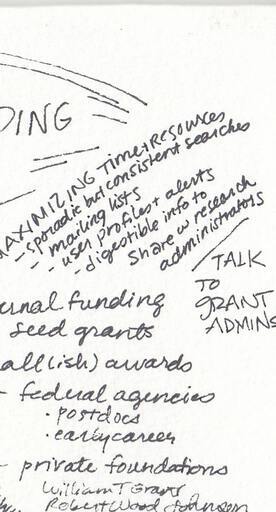 DING
MAXIMIZING TIME+RESOURCES
- sporadic but consistent searches
- mailing lists
- user profiles + alerts
- digestible info to
share w research
administrators
TALK
TO
GRANT
ADMINS
ernal funding
seed grants
all(ish) awards
- federal agencies
· postdocs
· early career
- private foundations
William T Grant
Robert Wood Johnson